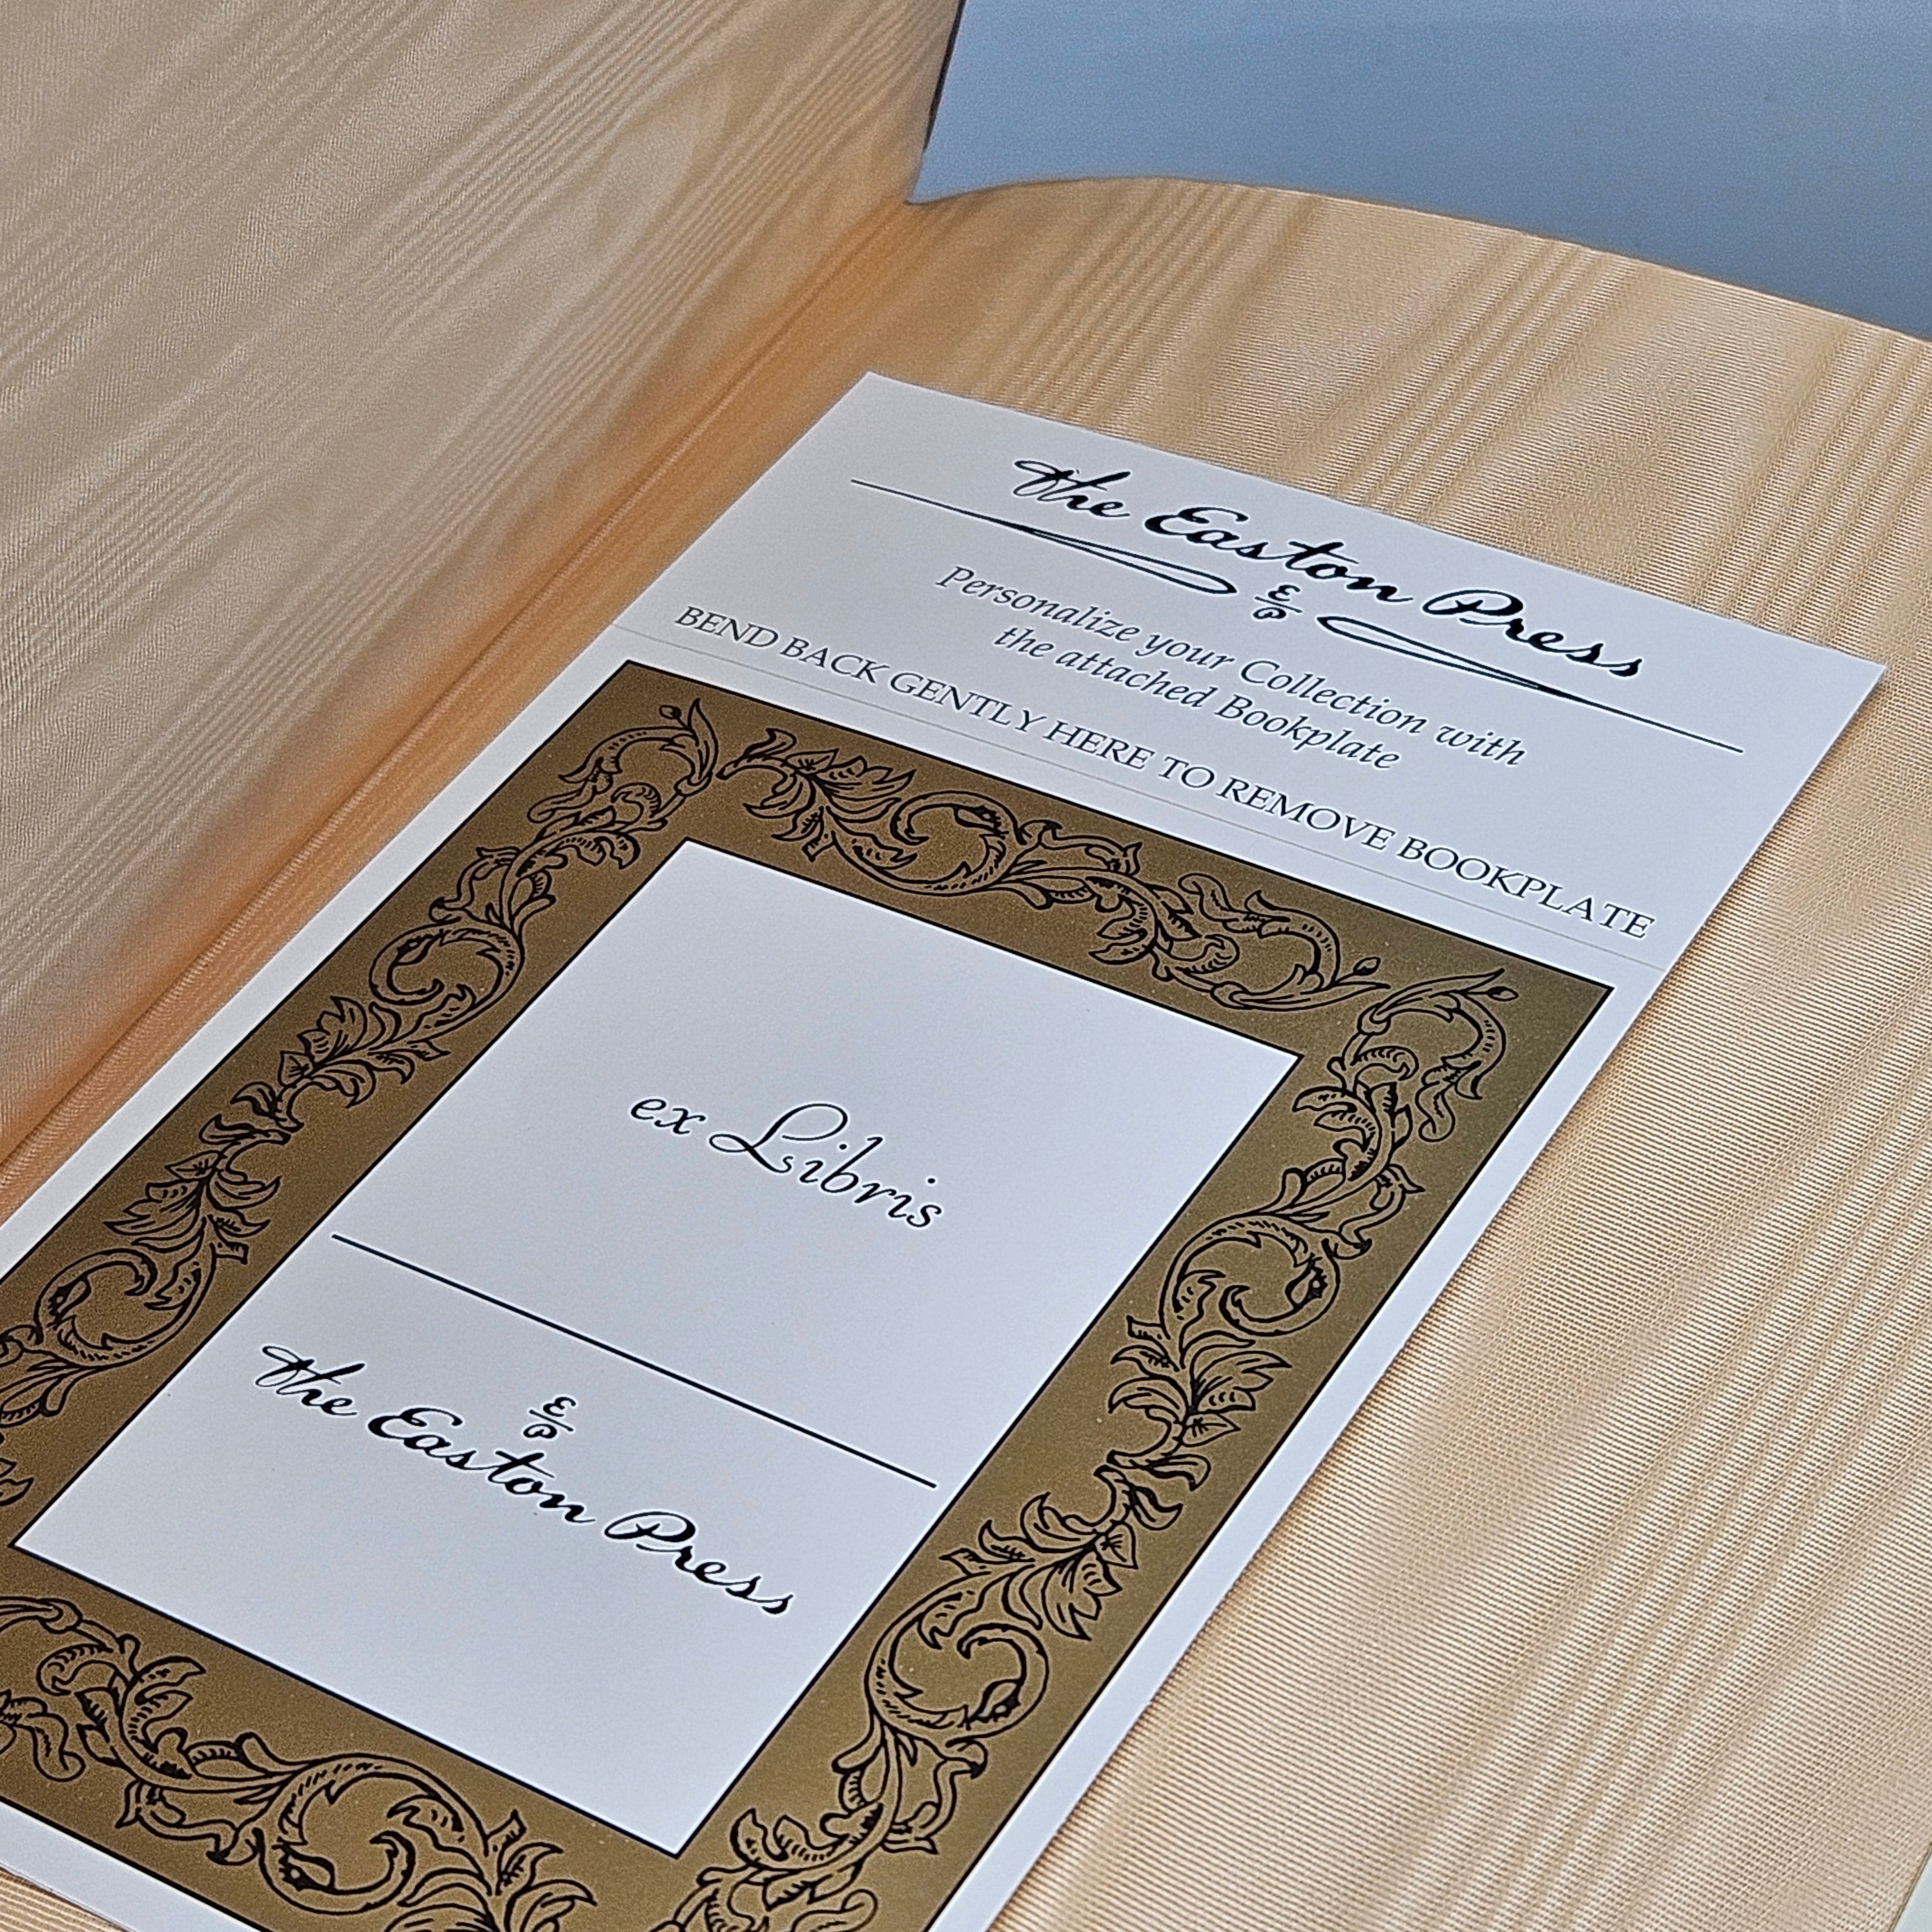 the Easton Press
EP
Personalize your Collection with
the attached Bookplate
BEND BACK GENTLY HERE TO REMOVE BOOKPLATE
ex Libris
EP
the Easton Press